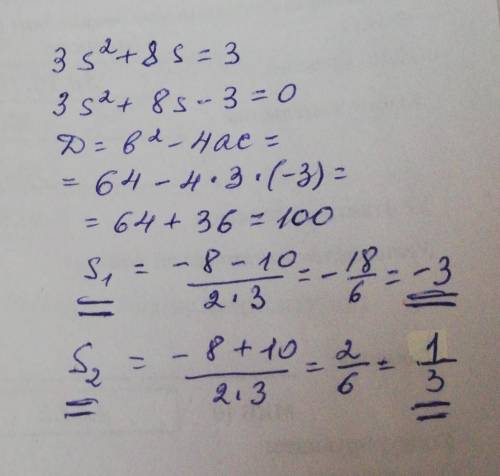 3s² + 8s = 3
3s² + 8s - 3 = 0
Д = b² - 4ac =
= 64 - 4 · 3 · (-3) =
= 64 + 36 = 100
S₁ = (-8 - 10)/(2·3) = -18/6 = -3
S₂ = (-8 + 10)/(2·3) = 2/6 = 1/3